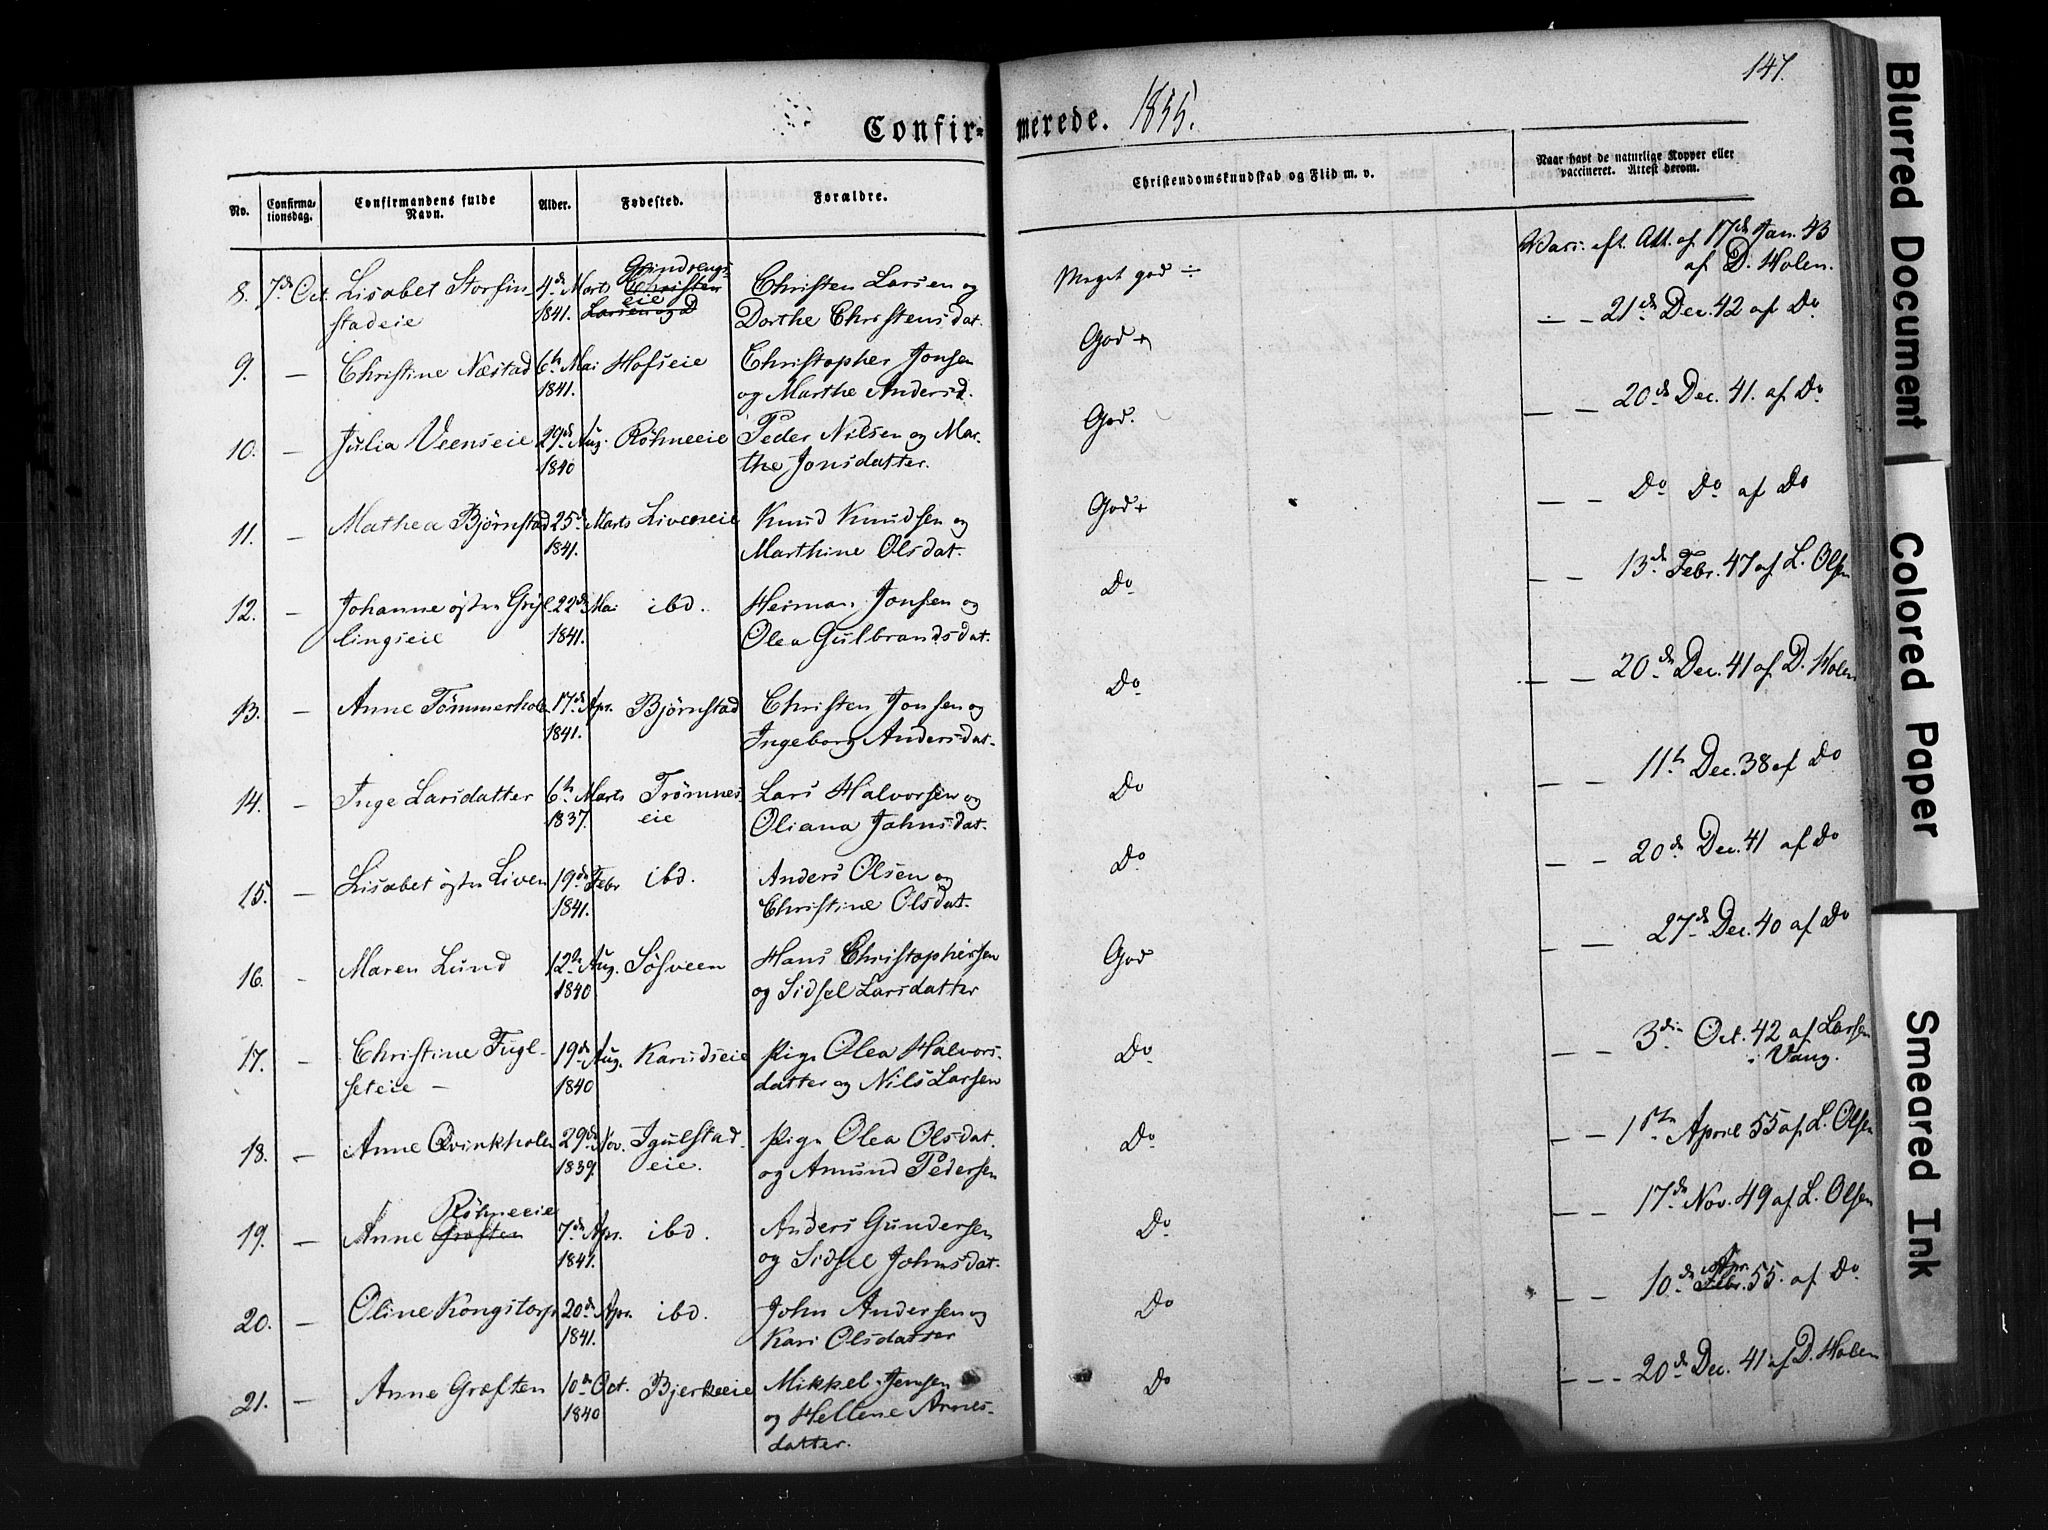 147.
Confirmerede. 1855.
No. Confirmationsdag. Confirmandens fulde Navn. Alder. Fødested. Forældre. Christendomskundskab og Flid m. v. Naar havt de naturlige Kopper eller vaccineret. Attest derom.
8. 7de Oct. Lisabet Storfin- 4de Marts Grindvengs- Christen Larsen og Meget god ÷ Vacc. eft. Att. af 17de Jan. 43
stadeie 1841. eie Dorthe Christensdat. af D. Holen.
9. — Christine Næstad 6te Mai Hofseie Christopher Jonsen God + — — 21de Dec. 42 af Do
1841. og Marthe Andersd.
10. — Julia Veenseie 29de Aug. Röhneeie Peder Nilsen og Mar- God. — — 20de Dec. 41. af Do
1840 the Jonsdatter.
11. — Mathea Björnstad 25de Marts Liveneie Knud Knudsen og God + — — Do Do af Do
1841. Marthine Olsdat.
12. — Johanne östen Gryl- 22de Mai ibd. Herman Jonsen og Do — — 13de Febr. 47 af L. Olsen
lingseie 1841. Olea Gulbrandsdat.
13. — Anne Tömmerholen 17de Apr. Björnstad Christen Jonsen og Do — — 20de Dec. 41 af D. Holen
1841. Ingeborg Andersdat.
14. — Inge Larsdatter 6te Marts Trömnes- Lars Halvorsen og Do — — 11te Dec. 38 af Do
1837. eie Oliana Johnsdat.
15. — Lisabet östen Liven 19de Febr ibd. Anders Olsen og Do — — 20de Dec. 41 af Do
1841. Christine Olsdat.
16. — Maren Lund 12te Aug. Sösveen Hans Christophersen God — — 27de Dec. 40 af Do
1840 og Sidsel Larsdatter
17. — Christine Fugl- 19de Aug. Karudseie Pige Olea Halvors- Do — — 3die Oct. 42 af Larsen
seteie — 1840 datter og Nils Larsen i Vang.
18. — Anne Qvinkholen 29de Nov. Igulstad- Pige Olea Olsdat. Do — — 1ste April 55 af L. Olsen
1839. eie. og Amund Pedersen
19. — Anne Röhneeie 7de Apr. ibd. Anders Gundersen Do — — 17de Nov. 49 af L. Olsen
Græften 1841. og Sidsel Johnsdat.
20. — Oline Kongstorp 20de Apr. ibd. John Andersen og Do — — 10de Apr. Febr. 55. af Do
1841. Kari Olsdatter
21. — Anne Græften 10de Oct. Bjerkeeie Mikkel Jensen Do — — — 20de Dec. 41 af D. Holen
1840 og Hellene Arnes-
datter.
Blurred Document
Colored Paper
Smeared Ink